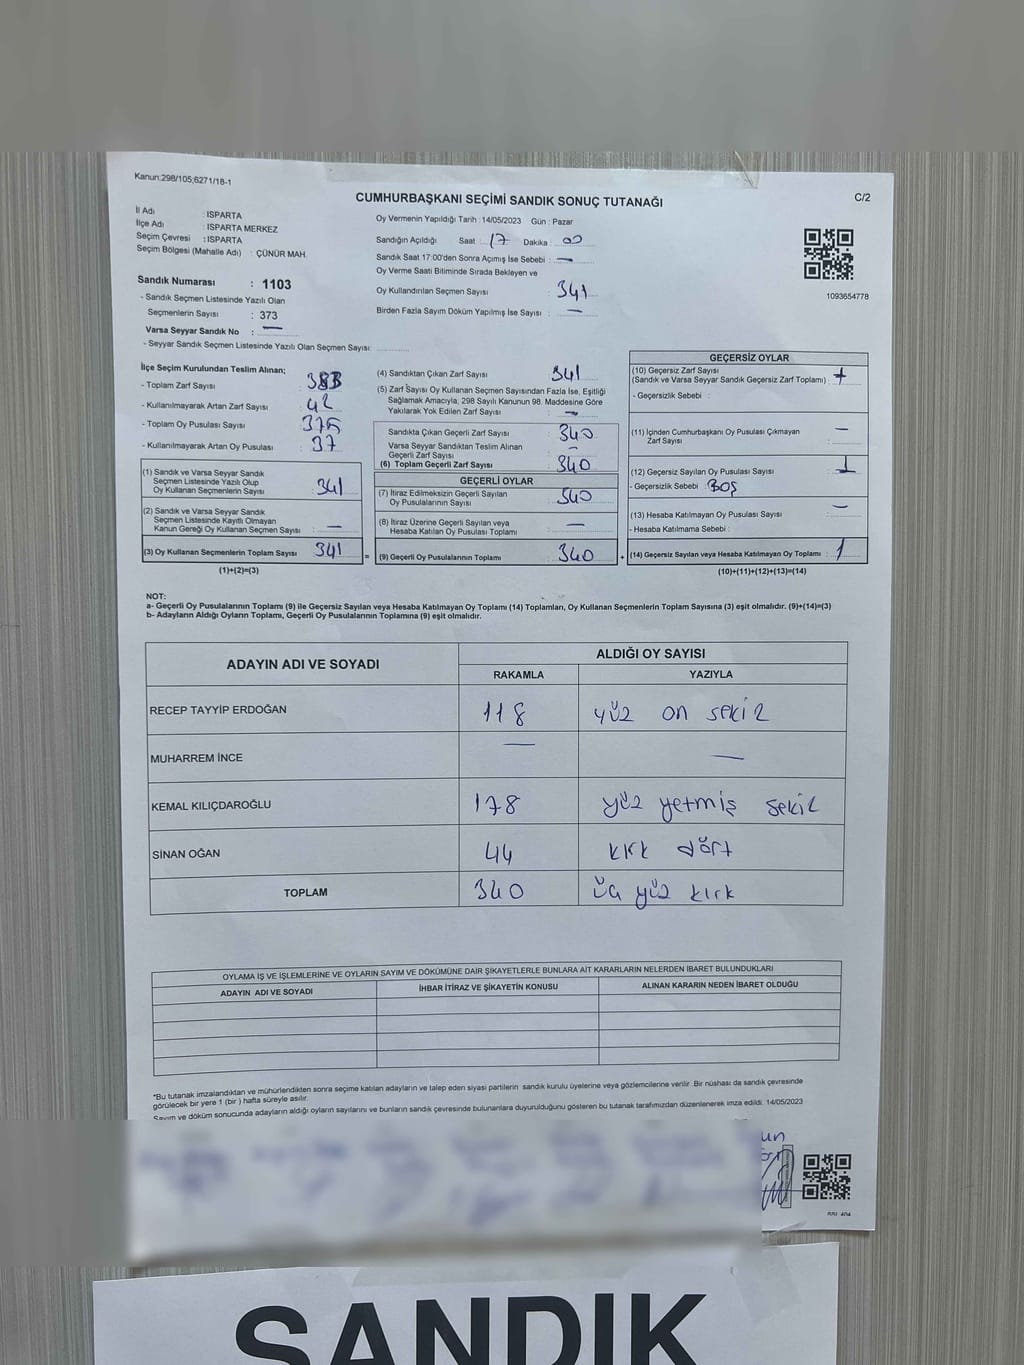 Kanun:298/105;6271/18-1
C/2
CUMHURBAŞKANI SEÇİMİ SANDIK SONUÇ TUTANAĞI
İl Adı : ISPARTA
İlçe Adı : ISPARTA MERKEZ
Seçim Çevresi : ISPARTA
Seçim Bölgesi (Mahalle Adı) : ÇÜNÜR MAH.
Sandık Numarası : 1103
- Sandık Seçmen Listesinde Yazılı Olan
Seçmenlerin Sayısı : 373
Varsa Seyyar Sandık No : —
- Seyyar Sandık Seçmen Listesinde Yazılı Olan Seçmen Sayısı:
Oy Vermenin Yapıldığı Tarih : 14/05/2023 Gün : Pazar
Sandığın Açıldığı Saat : 17 Dakika : 00
Sandık Saat 17:00'den Sonra Açımış İse Sebebi : —
Oy Verme Saati Bitiminde Sırada Bekleyen ve
Oy Kullandırılan Seçmen Sayısı : 341
Birden Fazla Sayım Döküm Yapılmış İse Sayısı : —
1093654778
İlçe Seçim Kurulundan Teslim Alınan;
- Toplam Zarf Sayısı : 383
- Kullanılmayarak Artan Zarf Sayısı : 42
- Toplam Oy Pusulası Sayısı :
- Kullanılmayarak Artan Oy Pusulası : 37
(1) Sandık ve Varsa Seyyar Sandık
Seçmen Listesinde Yazılı Olup
Oy Kullanan Seçmenlerin Sayısı : 341
(2) Sandık ve Varsa Seyyar Sandık
Seçmen Listesinde Kayıtlı Olmayan
Kanun Gereği Oy Kullanan Seçmen Sayısı : —
(3) Oy Kullanan Seçmenlerin Toplam Sayısı : 341
(1)+(2)=(3)
(4) Sandıktan Çıkan Zarf Sayısı : 341
(5) Zarf Sayısı Oy Kullanan Seçmen Sayısından Fazla İse, Eşitliği
Sağlamak Amacıyla, 298 Sayılı Kanunun 98. Maddesine Göre
Yakılarak Yok Edilen Zarf Sayısı : —
Sandıkta Çıkan Geçerli Zarf Sayısı : 340
Varsa Seyyar Sandıktan Teslim Alınan
Geçerli Zarf Sayısı : —
(6) Toplam Geçerli Zarf Sayısı : 340
GEÇERLİ OYLAR
(7) İtiraz Edilmeksizin Geçerli Sayılan
Oy Pusulalarının Sayısı : 340
(8) İtiraz Üzerine Geçerli Sayılan veya
Hesaba Katılan Oy Pusulaları Toplamı : —
= (9) Geçerli Oy Pusulalarının Toplamı : 340
GEÇERSİZ OYLAR
(10) Geçersiz Zarf Sayısı
(Sandık ve Varsa Seyyar Sandık Geçersiz Zarf Toplamı) :
- Geçersizlik Sebebi :
(11) İçinden Cumhurbaşkanı Oy Pusulası Çıkmayan
Zarf Sayısı : —
(12) Geçersiz Sayılan Oy Pusulası Sayısı : 1
- Geçersizlik Sebebi : BOŞ
(13) Hesaba Katılmayan Oy Pusulası Sayısı : —
- Hesaba Katılmama Sebebi :
+ (14) Geçersiz Sayılan veya Hesaba Katılmayan Oy Toplamı : 1
(10)+(11)+(12)+(13)=(14)
NOT:
a- Geçerli Oy Pusulalarının Toplamı (9) ile Geçersiz Sayılan veya Hesaba Katılmayan Oy Toplamı (14) Toplamları, Oy Kullanan Seçmenlerin Toplam Sayısına (3) eşit olmalıdır. (9)+(14)=(3)
b- Adayların Aldığı Oyların Toplamı, Geçerli Oy Pusulalarının Toplamına (9) eşit olmalıdır.
ADAYIN ADI VE SOYADI ALDIĞI OY SAYISI
RAKAMLA YAZIYLA
RECEP TAYYİP ERDOĞAN 118 yüz on sekiz
MUHARREM İNCE — —
KEMAL KILIÇDAROĞLU 178 yüz yetmiş sekiz
SİNAN OĞAN 44 kırk dört
TOPLAM 340 üç yüz kırk
OYLAMA İŞ VE İŞLEMLERİNE VE OYLARIN SAYIM VE DÖKÜMÜNE DAİR ŞİKAYETLERLE BUNLARA AİT KARARLARIN NELERDEN İBARET BULUNDUKLARI
ADAYIN ADI VE SOYADI İHBAR İTİRAZ VE ŞİKAYETİN KONUSU ALINAN KARARIN NEDEN İBARET OLDUĞU
*Bu tutanak imzalandıktan ve mühürlendikten sonra seçime katılan adayların ve talep eden siyasi partilerin sandık kurulu üyelerine veya gözlemcilerine verilir. Bir nüshası da sandık çevresinde
görülecek bir yere 1 (bir ) hafta süreyle asılır.
Sayım ve döküm sonucunda adayların aldığı oyların sayılarını ve bunların sandık çevresinde bulunanlara duyurulduğunu gösteren bu tutanak tarafımızdan düzenlenerek imza edildi. 14/05/2023
SANDIK